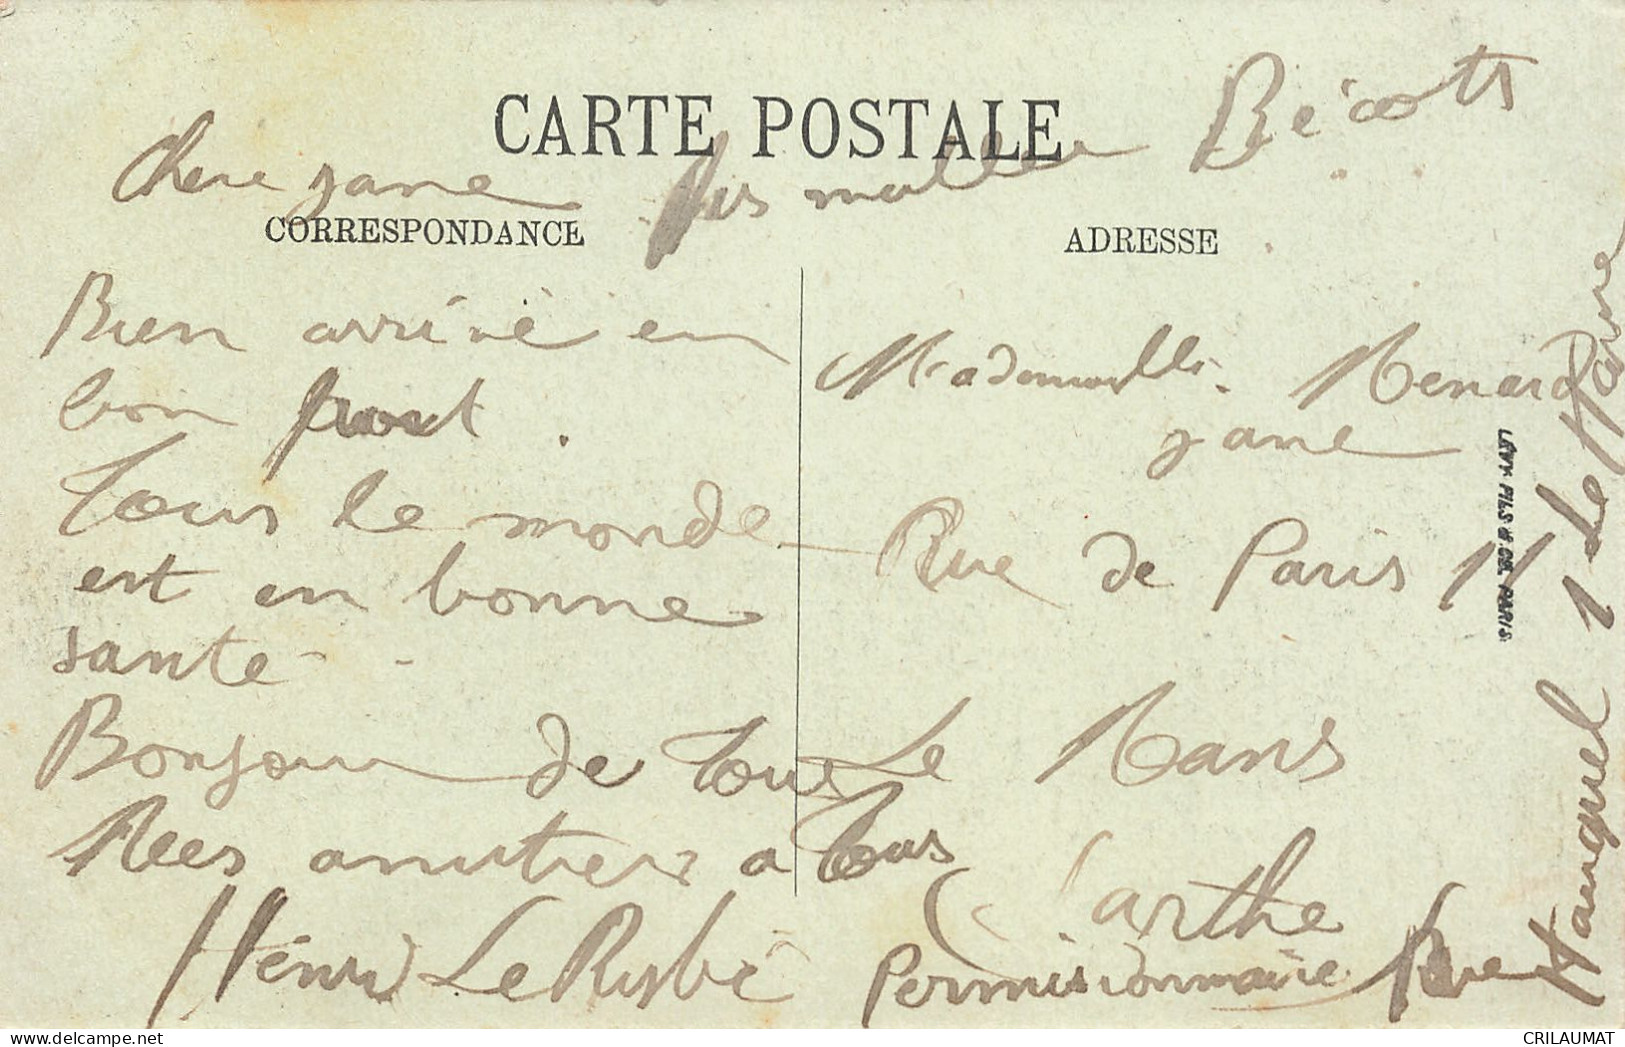 CARTE POSTALE
Chere jane mes mille Bécots
CORRESPONDANCE
Bien arrivé en
bon port.
Tous le monde
est en bonne
santé.
Bonjour de tous
Mes amitiers a tous
Henri Le
ADRESSE
Mademoiselle Menard
jane
Rue de Paris 11
Le Mans
Sarthe
Permissionnaire Rue
1 Le Havre
LÉVY FILS & CIE. PARIS
CRILAUMAT